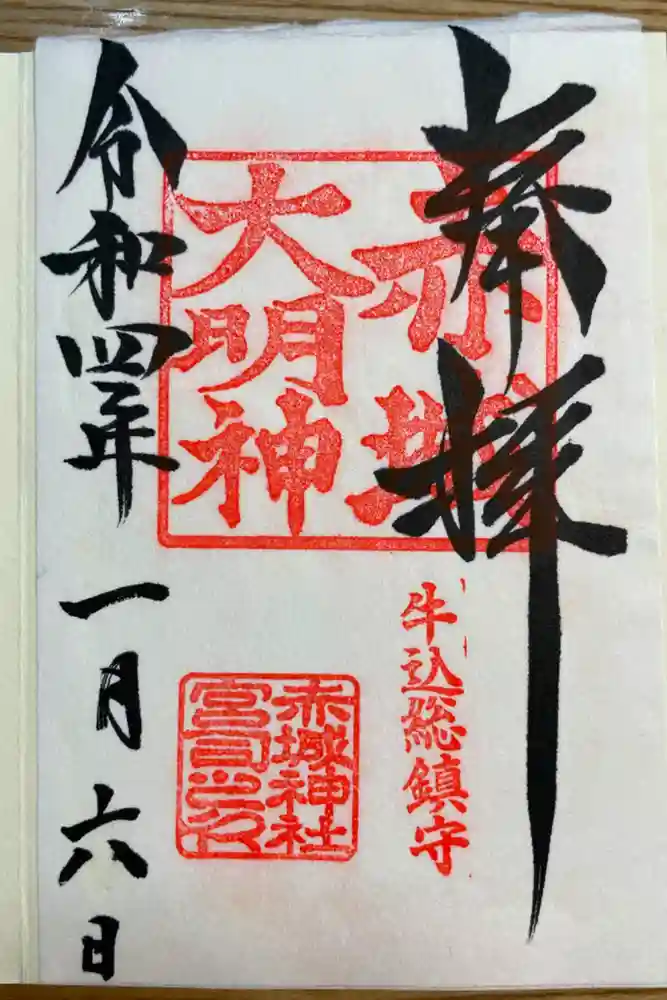 奉拝
赤城
大明神
牛込総鎮守
赤城神社
宮司之印
令和四年
一月六日